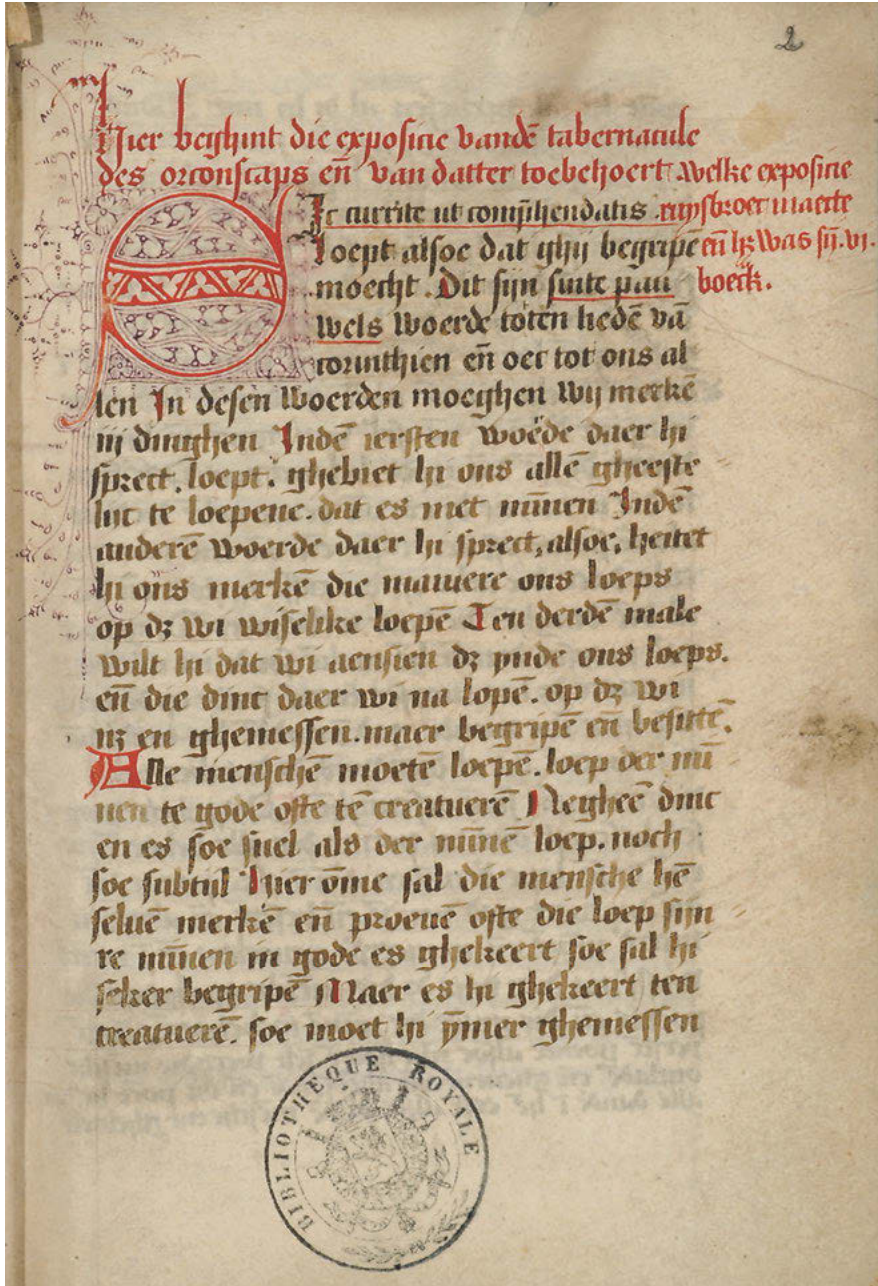 2
Hier beghint die expositie vandē tabernacule
des orconscaps eñ van datter toebehoert. welke expositie
Sic currite ut comp̄hendatis. ruysbroec maecte
Loept alsoe dat ghij begripē eñ hz was sij. vi.
moecht. Dit sijn suite pau boeck.
wels woerde toten liedē vā
corinthien eñ oec tot ons al
len In desen woerden moeghen wij merkē
iij dinghen Indē iersten woēde daer hi
sprect. loept. ghebiet hi ons allē gheeste
lijc te loepene. dat es met mīnen Indē
anderē woerde daer hi sprect, alsoe, heitet
hi ons merkē die maniere ons loeps
op dz wi wiselike loepē Ten derdē male
wilt hi dat wi aensien dz ynde ons loeps.
eñ die dinc daer wi na lopē. op dz wi
nz en ghemessen. maer begripē eñ besittē.
Alle menschē moetē loepē. loep der mī
nen te gode ofte tē creatuerē Negheē dinc
en es soe snel als der mīnē loep. noch
soe subtijl Hier ōme sal die mensche hē
seluē merkē eñ proeuē ofte die loep sijn
re mīnen in gode es ghekeert soe sal hi
seker begripē Maer es hi ghekeert ten
creatuerē. soe moet hi ȳmer ghemessen
BIBLIOTHEQUE ROYALE